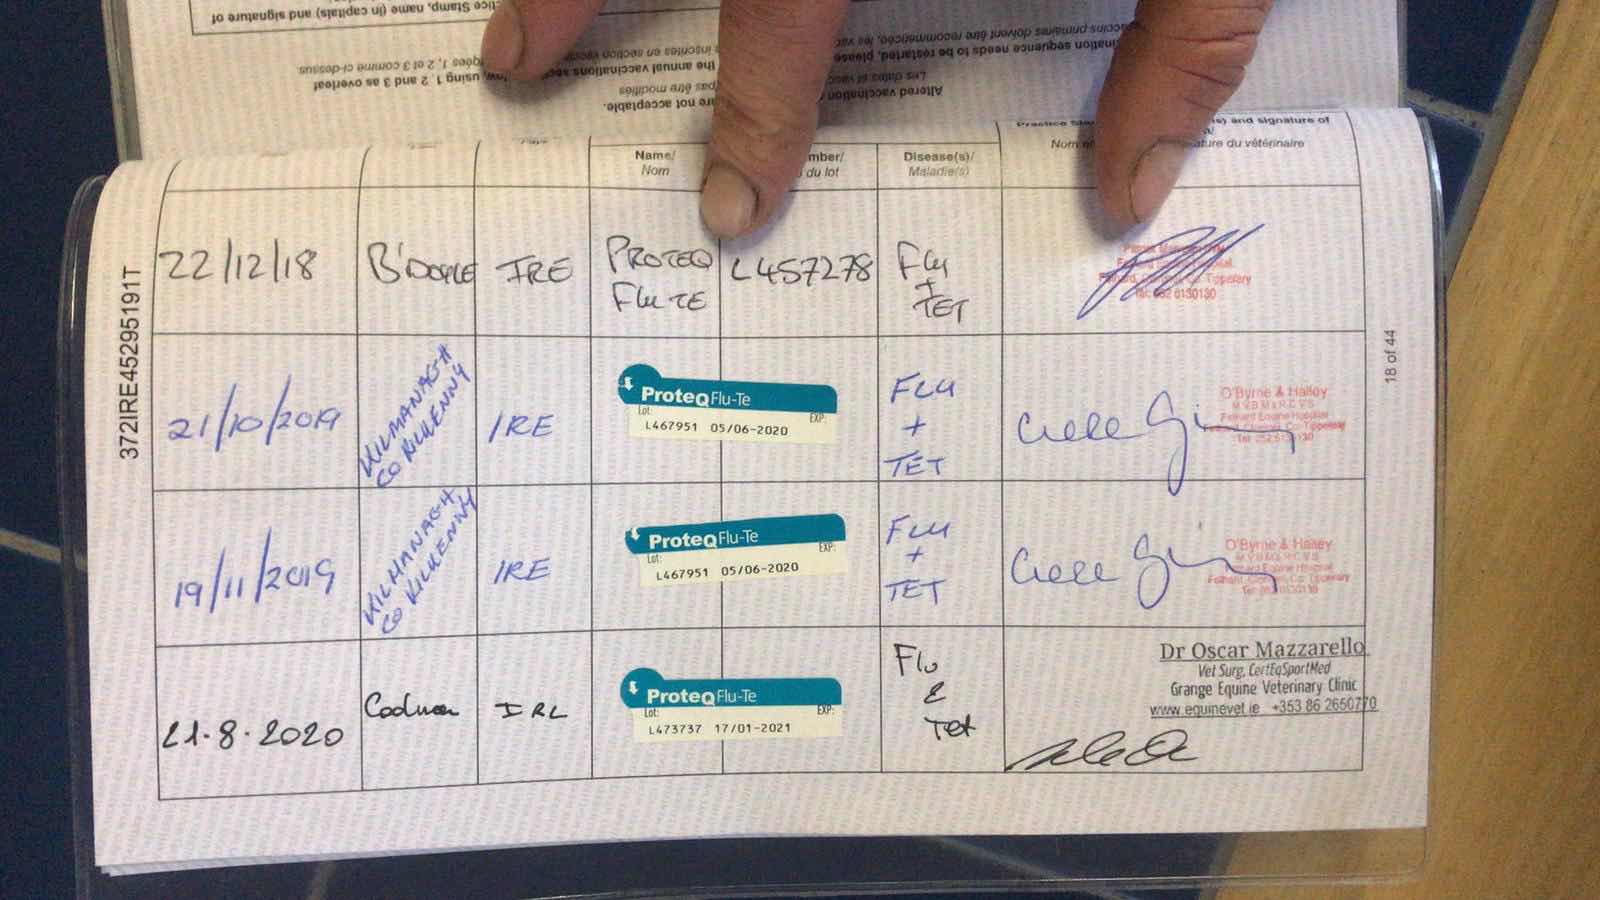 Practice Stamp, name (in capitals) and signature of
vaccination sequence needs to be restarted, please
vaccins primaires doivent être recommencées, les
the annual vaccinations using 1, 2 and 3 as overleaf
inscrites en section 1, 2 et 3 comme ci-dessus
Altered vaccination are not acceptable.
Les dates si pas être modifiés
Name/
Nom
mber/
du lot
Disease(s)/
Maladie(s)
and signature of
Nom et signature du vétérinaire
22/12/18 B'DOYLE IRE PROTEQ FLU TE L457278 FLU + TET
Tel: 052 6130130
21/10/2019 KILMANAGH CO KILKENNY IRE
ProteqFlu-Te
Lot: EXP:
L467951 05/06-2020
FLU + TET
O'Byrne & Halley
M.V.B M.R.C.V.S
Fethard Equine Hospital
Fethard, Clonmel, Co. Tipperary
Tel: 052 6130130
19/11/2019 KILMANAGH CO KILKENNY IRE
ProteqFlu-Te
Lot: EXP:
L467951 05/06-2020
FLU + TET
O'Byrne & Halley
M.V.B M.R.C.V.S
Fethard Equine Hospital
Fethard, Clonmel, Co. Tipperary
Tel: 052 6130130
21.8.2020 IRL
ProteqFlu-Te
Lot: EXP:
L473737 17/01-2021
Flu & Tet
Dr Oscar Mazzarello
Vet Surg, CertEqSportMed
Grange Equine Veterinary Clinic
www.equinevet.ie +353 86 2650770
372IRE45295191T
18 of 44